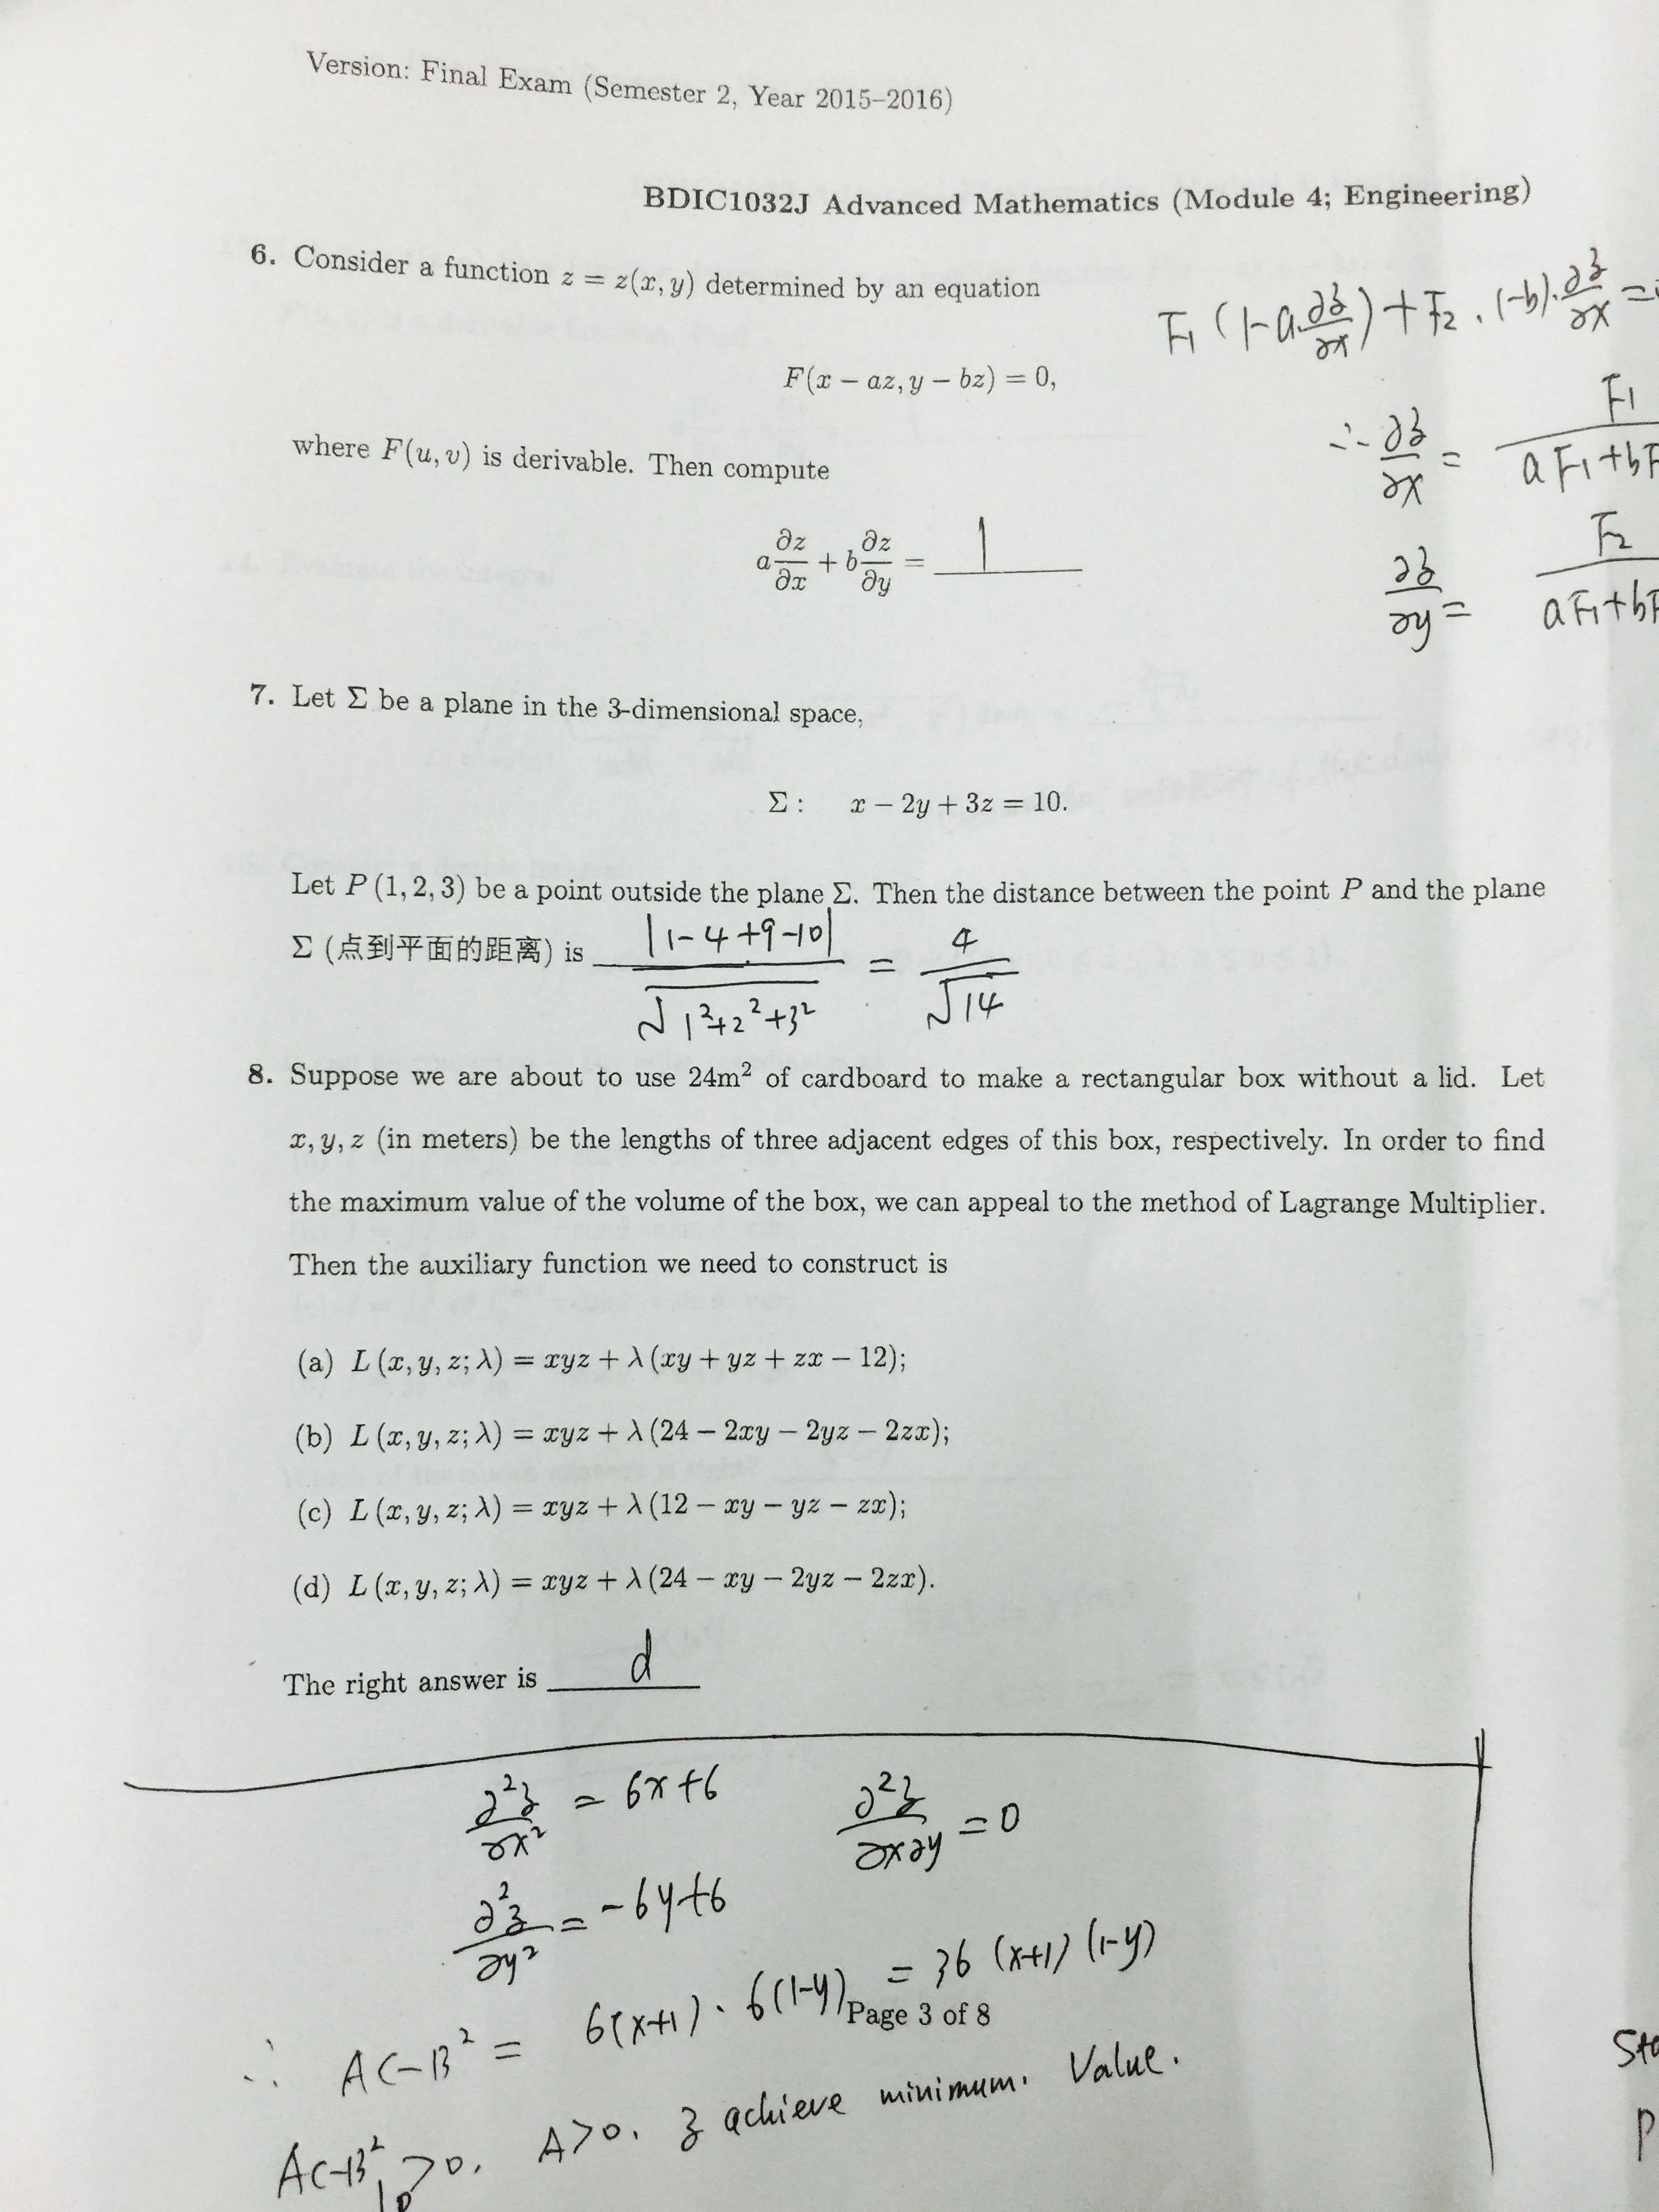 Version: Final Exam (Semester 2, Year 2015–2016)
BDIC1032J Advanced Mathematics (Module 4; Engineering)
6. Consider a function z = z(x, y) determined by an equation
F₁(1-a·∂z/∂x)+F₂·(-b)·∂z/∂x=
F(x − az, y − bz) = 0,
∴ ∂z/∂x = F₁/(aF₁+bF
where F(u, v) is derivable. Then compute
a ∂z/∂x + b ∂z/∂y = 1
∂z/∂y = F₂/(aF₁+bF
7. Let Σ be a plane in the 3-dimensional space,
Σ : x − 2y + 3z = 10.
Let P (1, 2, 3) be a point outside the plane Σ. Then the distance between the point P and the plane
Σ (点到平面的距离) is |1-4+9-10|/√(1²+2²+3²) = 4/√14
8. Suppose we are about to use 24m² of cardboard to make a rectangular box without a lid. Let
x, y, z (in meters) be the lengths of three adjacent edges of this box, respectively. In order to find
the maximum value of the volume of the box, we can appeal to the method of Lagrange Multiplier.
Then the auxiliary function we need to construct is
(a) L (x, y, z; λ) = xyz + λ (xy + yz + zx − 12);
(b) L (x, y, z; λ) = xyz + λ (24 − 2xy − 2yz − 2zx);
(c) L (x, y, z; λ) = xyz + λ (12 − xy − yz − zx);
(d) L (x, y, z; λ) = xyz + λ (24 − xy − 2yz − 2zx).
The right answer is d
∂²z/∂x² = 6x+6 ∂²z/∂x∂y = 0
∂²z/∂y² = -6y+6
∴ AC-B² = 6(x+1)·6(1-y) = 36(x+1)(1-y)
Page 3 of 8
AC-B²>0, A>0, z achieve minimum. Value.